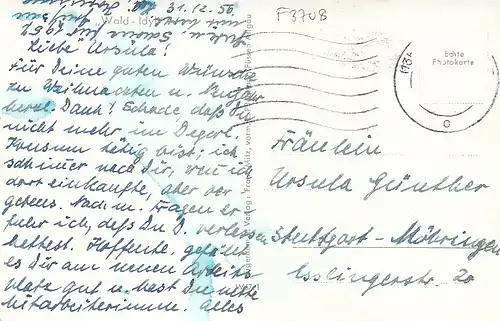 F3708
31.12.56
"Wald-Idyll"
Liebe Ursula!
Für Deine guten Wünsche
zu Weihnachten u. Neujahr
herzl. Dank! Schade, daß Du
nicht mehr im Degerl.
Konsum tätig bist; ich
sah immer nach Dir, wenn ich
dort einkaufte, aber ver-
gebens. Nach m. Fragen er-
fuhr ich, daß Du D. verlassen
hattest. Hoffentl. gefällt
es Dir am neuen Arbeits-
platz gut u. hast Du nette
Mitarbeiterinnen. Alles
Echte
Photokarte
Fräulein
Ursula Günther
Stuttgart-Möhringen
Esslingerstr. 20